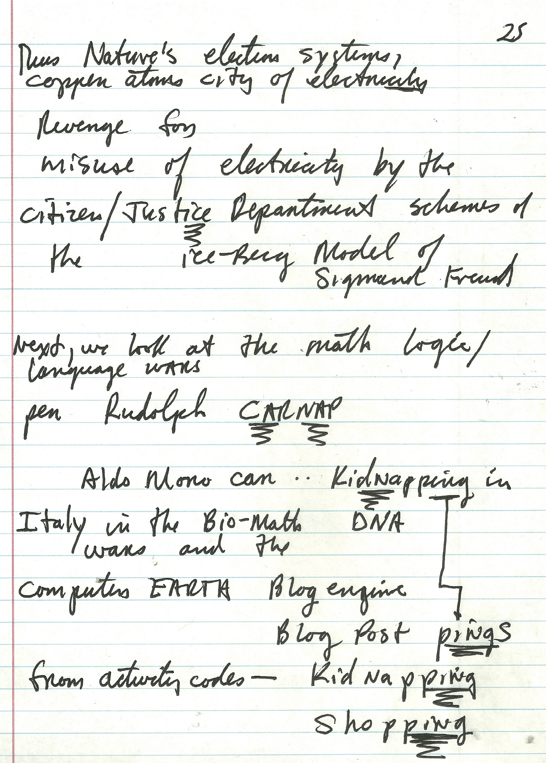 25
Thus Nature's electron systems,
copper atoms city of electricity
Revenge for
misuse of electricity by the
citizen/Justice Department schemes of
the ice-Berg Model of
Sigmund Freud
Next, we look at the math logic/
language wars
per Rudolph CARNAP
Aldo Moro can .. Kidnapping in
Italy in the Bio-Math DNA
wars and the
computers EARTH Blog engine
Blog Post pings
from activity codes — Kid Na pping
Sho pping